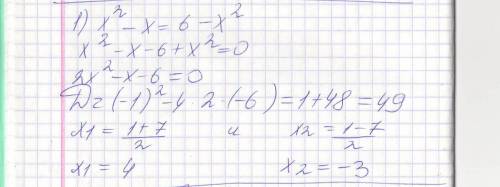 1) x² - x = 6 - x²
x² - x - 6 + x² = 0
2x² - x - 6 = 0
D = (-1)² - 4 · 2 · (-6) = 1 + 48 = 49
x1 = (1+7)/2 и x2 = (1-7)/2
x1 = 4 x2 = -3